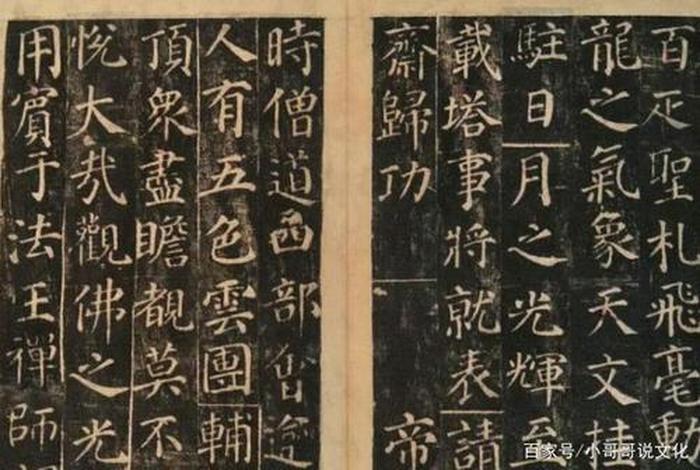 百疋聖札飛毫動
龍之氣象天文挂
駐日月之光輝至
載塔事將就表請
齋歸功　帝
時僧道四部會逾
人有五色雲團輔
頂衆盡瞻覩莫不
悅大哉觀佛之光
用賓于法王禪師
百家号/小哥哥说文化